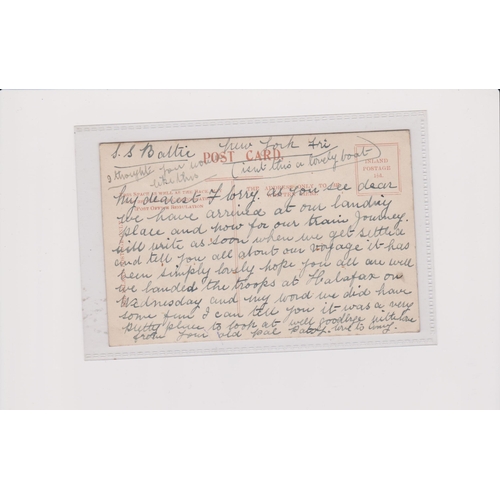 S.S Baltic New York Fri
I thought you would like this
(isnt this a lovely boat)
POST CARD
INLAND
POSTAGE
½d.
My dearest Florry. as you see dear
we have arrived at our landing
place and now for our train Journey.
will write as soon when we get settled
and tell you all about our voyage it has
been simply lovely hope you all are well
we landed the troops at Halafax on
Wednesday and my word we did have
some fun I can tell you it was a very
pretty place to look at well goodbye with love
from your old pal